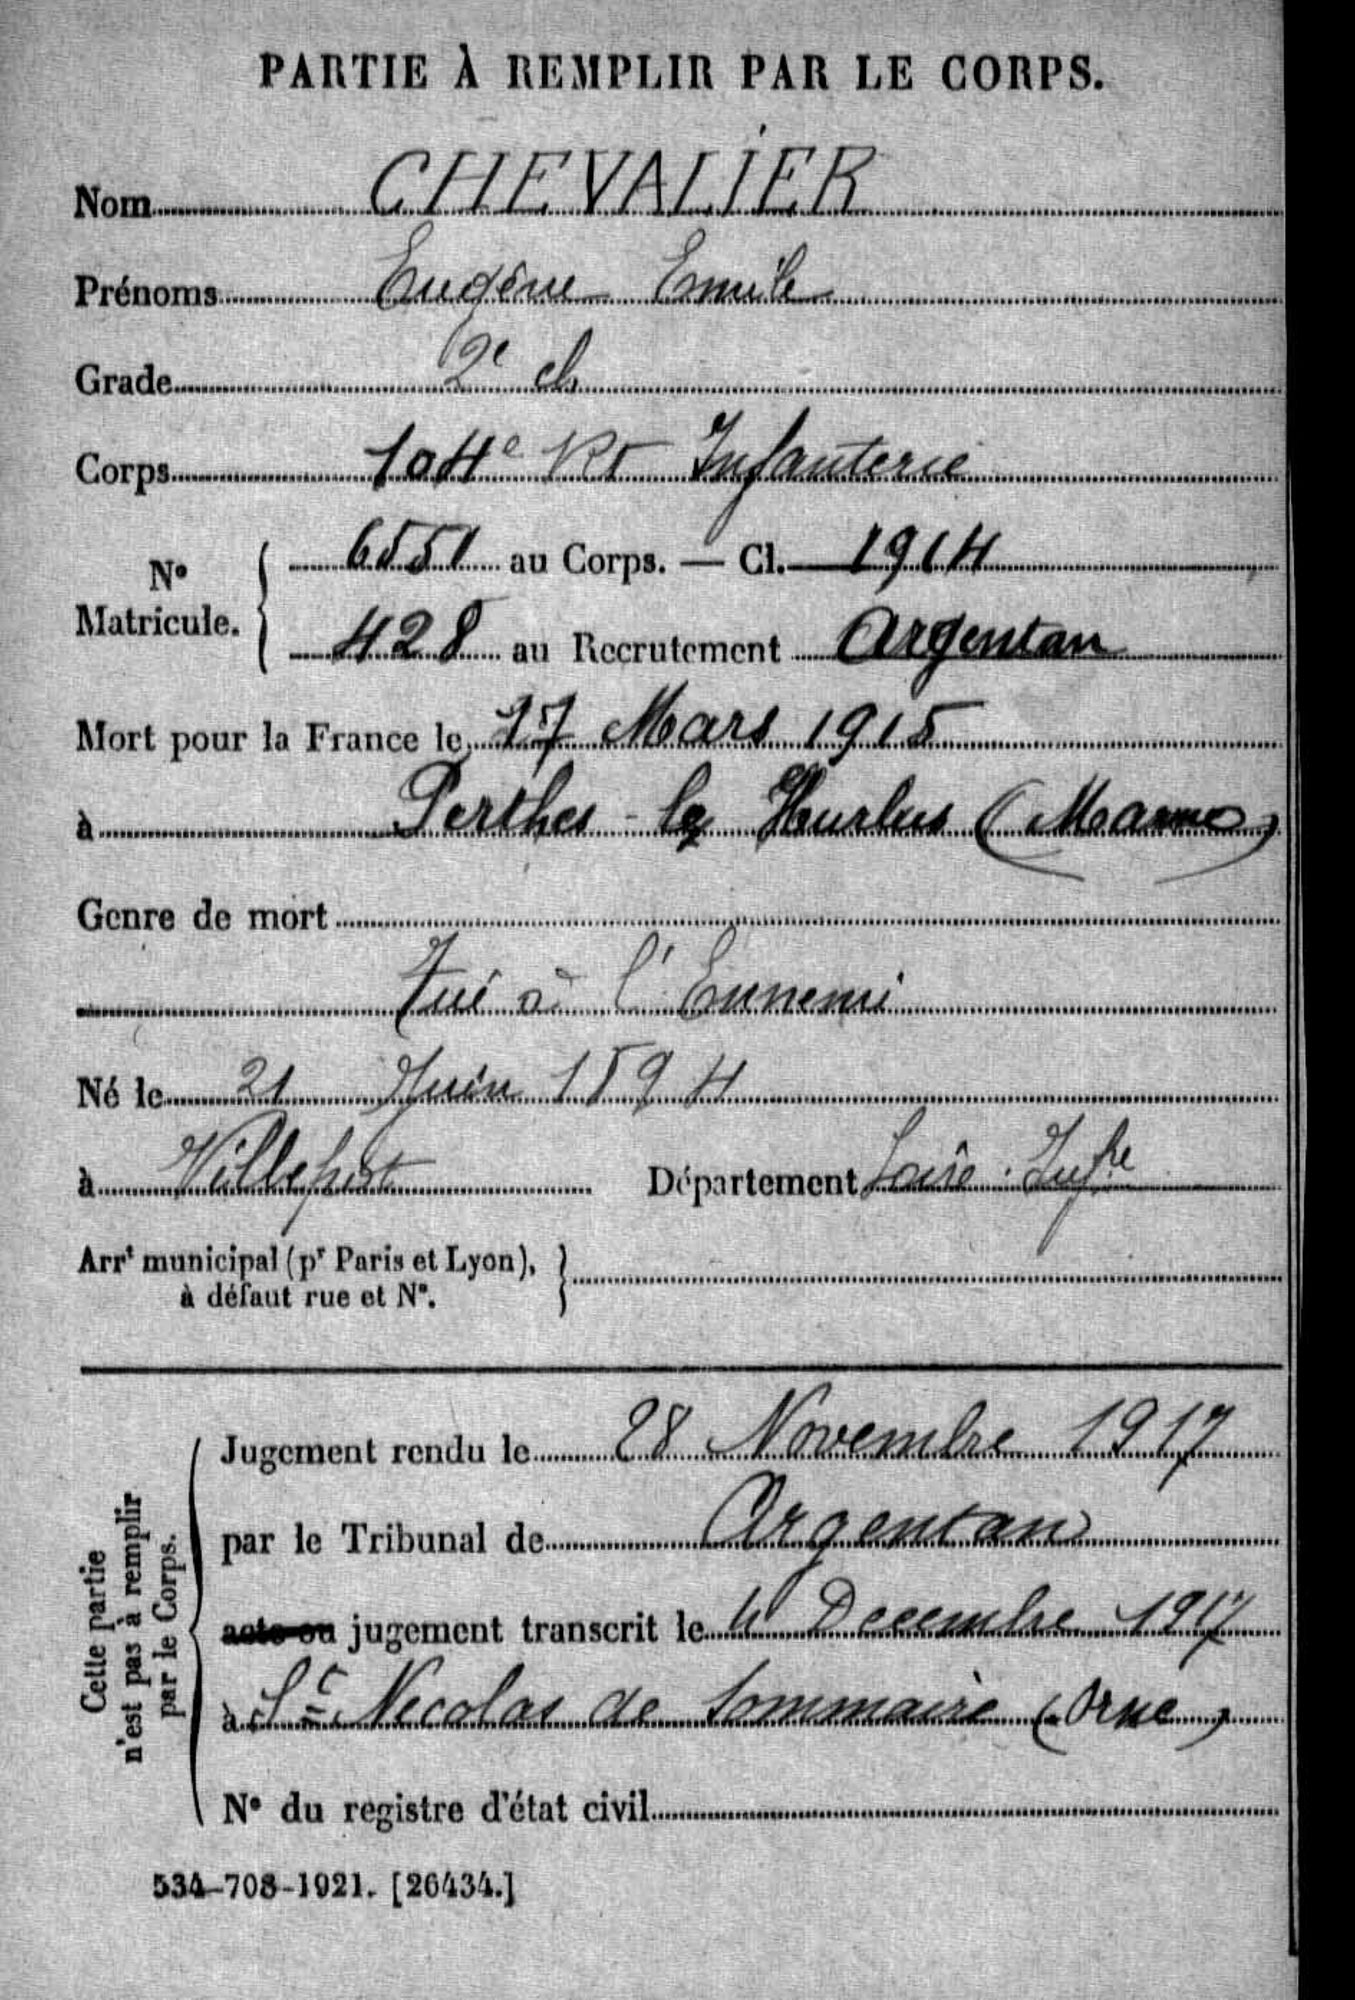 PARTIE À REMPLIR PAR LE CORPS.
Nom CHEVALIER
Prénoms Eugène Emile
Grade 2e cl.
Corps 104e Rt Infanterie
No Matricule. { 6551 au Corps. — Cl. 1914
428 au Recrutement Argentan
Mort pour la France le 17 Mars 1915
à Perthes-lez Hurlus (Marne)
Genre de mort
Tué à l'Ennemi
Né le 21 Juin 1894
à Villepot Département Loire Infre
Arrt municipal (pr Paris et Lyon), }
à défaut rue et No.
Cette partie
n'est pas à remplir
par le Corps.
Jugement rendu le 28 Novembre 1917
par le Tribunal de Argentan
acte ou jugement transcrit le 4 Decembre 1917
à St Nicolas de Sommaire (Orne)
No du registre d'état civil
534-708-1921. [26434.]